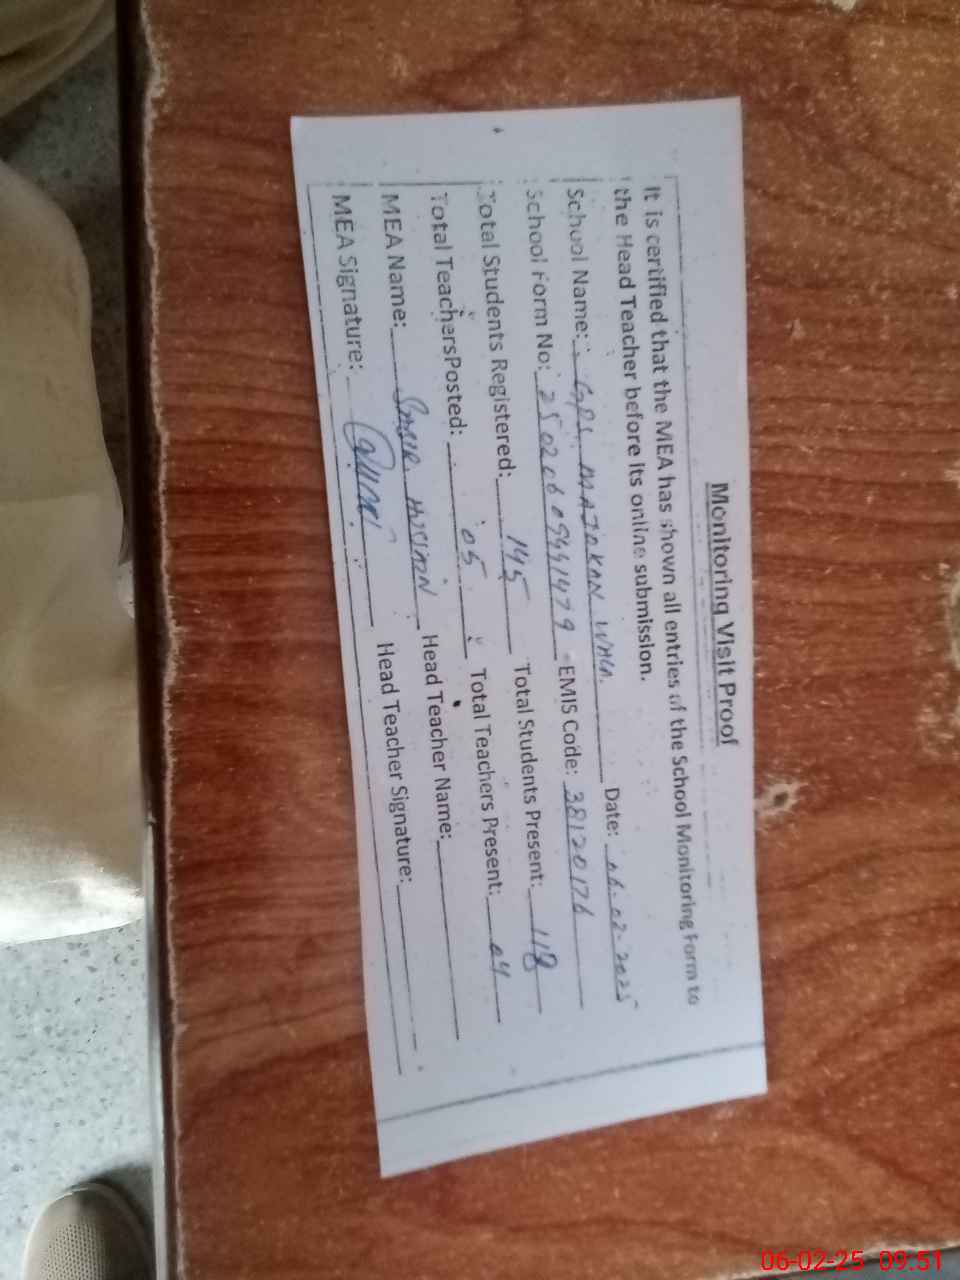 Monitoring Visit Proof
It is certified that the MEA has shown all entries of the School Monitoring Form to
the Head Teacher before its online submission.
School Name: GPS MAJOKAN WALA. Date: 06-02-2025
School Form No: EMIS Code: 38120176
Total Students Registered: 145 Total Students Present: 118
Total TeachersPosted: 05 Total Teachers Present: 04
MEA Name: HUSSAIN Head Teacher Name:
MEA Signature: Head Teacher Signature:
06-02-25 09:51